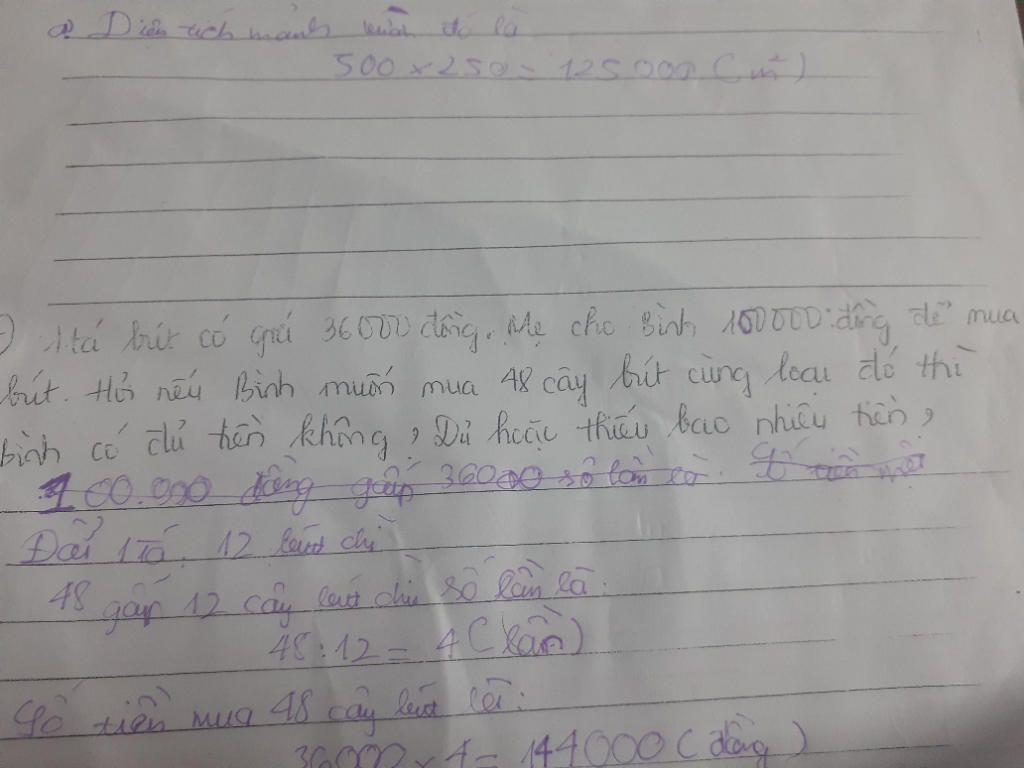 a) Diện tích mảnh vườn đó là
500 x 250 = 125000 (m²)
1 tá bút có giá 36000 đồng. Mẹ cho Bình 100000 đồng để mua
bút. Hỏi nếu Bình muốn mua 48 cây bút cùng loại đó thì
Bình có đủ tiền không, Dủ hoặc thiếu bao nhiêu tiền,
100.000 đồng gấp 36000 số lần là: Số tiền
Đổi 1 tá. 12 bút chì
48 gấp 12 cây bút chì số lần là:
48 : 12 = 4 (lần)
Số tiền mua 48 cây bút là:
36000 x 4 = 144000 (đồng)